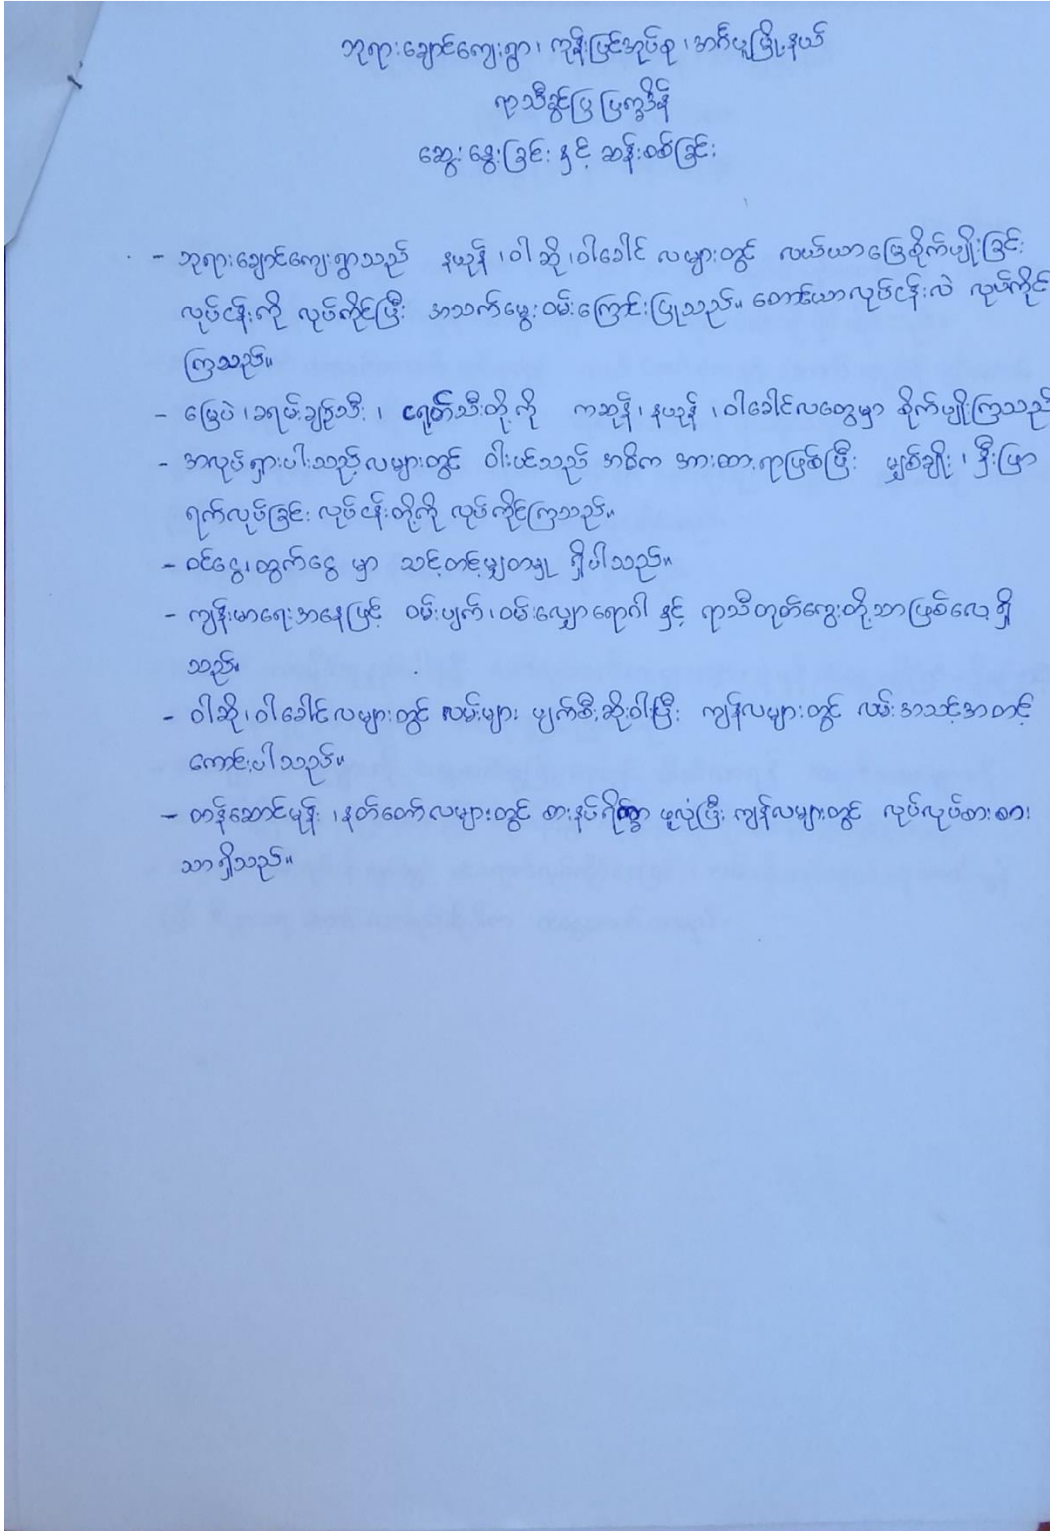 ဘုရားချောင်ကျေးရွာ၊ ကုန်းပြင်အုပ်စု ၊အင်္ဂပူမြို့နယ်
ရာသီခွင်ပြ ပြက္ခဒိန်
ဆွေးနွေးခြင်း နှင့် ဆန်းစစ်ခြင်း
- ဘုရားချောင်ကျေးရွာသည် နယုန် ၊ဝါဆို ၊ဝါခေါင် လများတွင် လယ်ယာမြေစိုက်ပျိုးခြင်း
လုပ်ငန်းကို လုပ်ကိုင်ပြီး အသက်မွေးဝမ်းကြောင်းပြုသည်။ တောင်ယာလုပ်ငန်းလဲ လုပ်ကိုင်
ကြသည်။
- မြေပဲ ၊ခရမ်းချဉ်သီး ၊ ငရုတ်သီးတို့ကို ကဆုန် ၊ နယုန် ၊ဝါခေါင်လတွေမှာ စိုက်ပျိုးကြသည်
- အလုပ်ရှားပါးသည့်လများတွင် ဝါးပင်သည် အဓိက အားထားရာဖြစ်ပြီး မျှစ်ချိုး ၊ နှီးဖြာ
ရက်လုပ်ခြင်း လုပ်ငန်းတို့ကို လုပ်ကိုင်ကြသည်။
- ဝင်ငွေ၊ထွက်ငွေ မှာ သင့်တင့်မျှတမှု ရှိပါသည်။
- ကျန်းမာရေးအနေဖြင့် ဝမ်းပျက်၊ဝမ်းလျှောရောဂါ နှင့် ရာသီတုတ်ကွေးတို့သာဖြစ်လေ့ရှိ
သည်။
- ဝါဆို၊ဝါခေါင်လများတွင် လမ်းများ ပျက်စီးဆိုးဝါပြီး ကျန်လများတွင် လမ်းအသင့်အတင့်
ကောင်းပါသည်။
- တန်ဆောင်မုန်း ၊နတ်တော်လများတွင် စားနပ်ရိက္ခာ ဖူလုံပြီး ကျန်လများတွင် လုပ်လုပ်စားစား
သာရှိသည်။